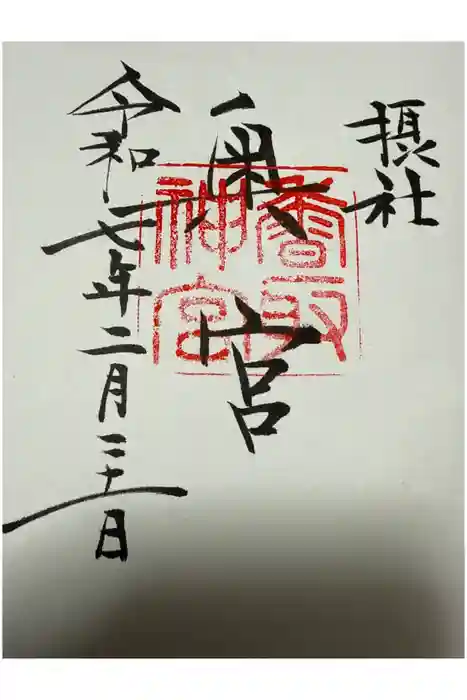 摂社
奥宮
香取神宮
令和七年二月二十一日